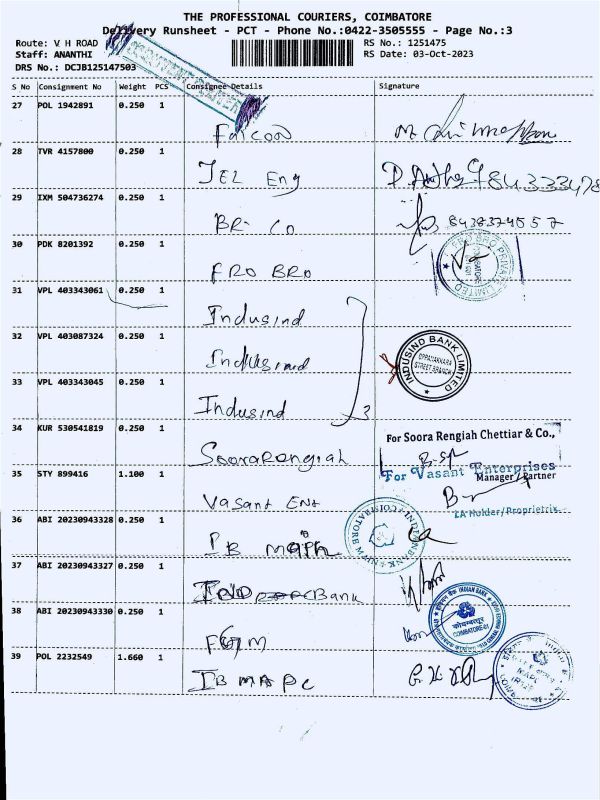 THE PROFESSIONAL COURIERS, COIMBATORE
Delivery Runsheet - PCT - Phone No.:0422-3505555 - Page No.:3
Route: V H ROAD
RS No.: 1251475
Staff: ANANTHI
RS Date: 03-Oct-2023
DRS No.: DCJB125147503
S No Consignment No Weight PCS Consignee Details Signature
27 POL 1942891 0.250 1
Falcon
28 TVR 4157800 0.250 1
JEL Eng
29 IXM 504736274 0.250 1
BR Co 8438374557
30 PDK 8201392 0.250 1
FRO BRO
31 VPL 403343061 0.250 1
Indusind
32 VPL 403087324 0.250 1
Indusind
INDUSIND BANK LIMITED
OPPANAKKARA
STREET BRANCH
33 VPL 403343045 0.250 1
Indusind
34 KUR 530541819 0.250 1
Soorarengiah
For Soora Rengiah Chettiar & Co.,
Manager/Partner
35 STY 899416 1.100 1
Vasant Ent
For Vasant Enterprises
LA Holder/Proprietrix
36 ABI 20230943328 0.250 1
IB MAPR
INDIAN BANK
37 ABI 20230943327 0.250 1
Bank
38 ABI 20230943330 0.250 1
FGM
INDIAN BANK
कोयम्बत्तूर
COIMBATORE-01
39 POL 2232549 1.660 1
IB MAPC